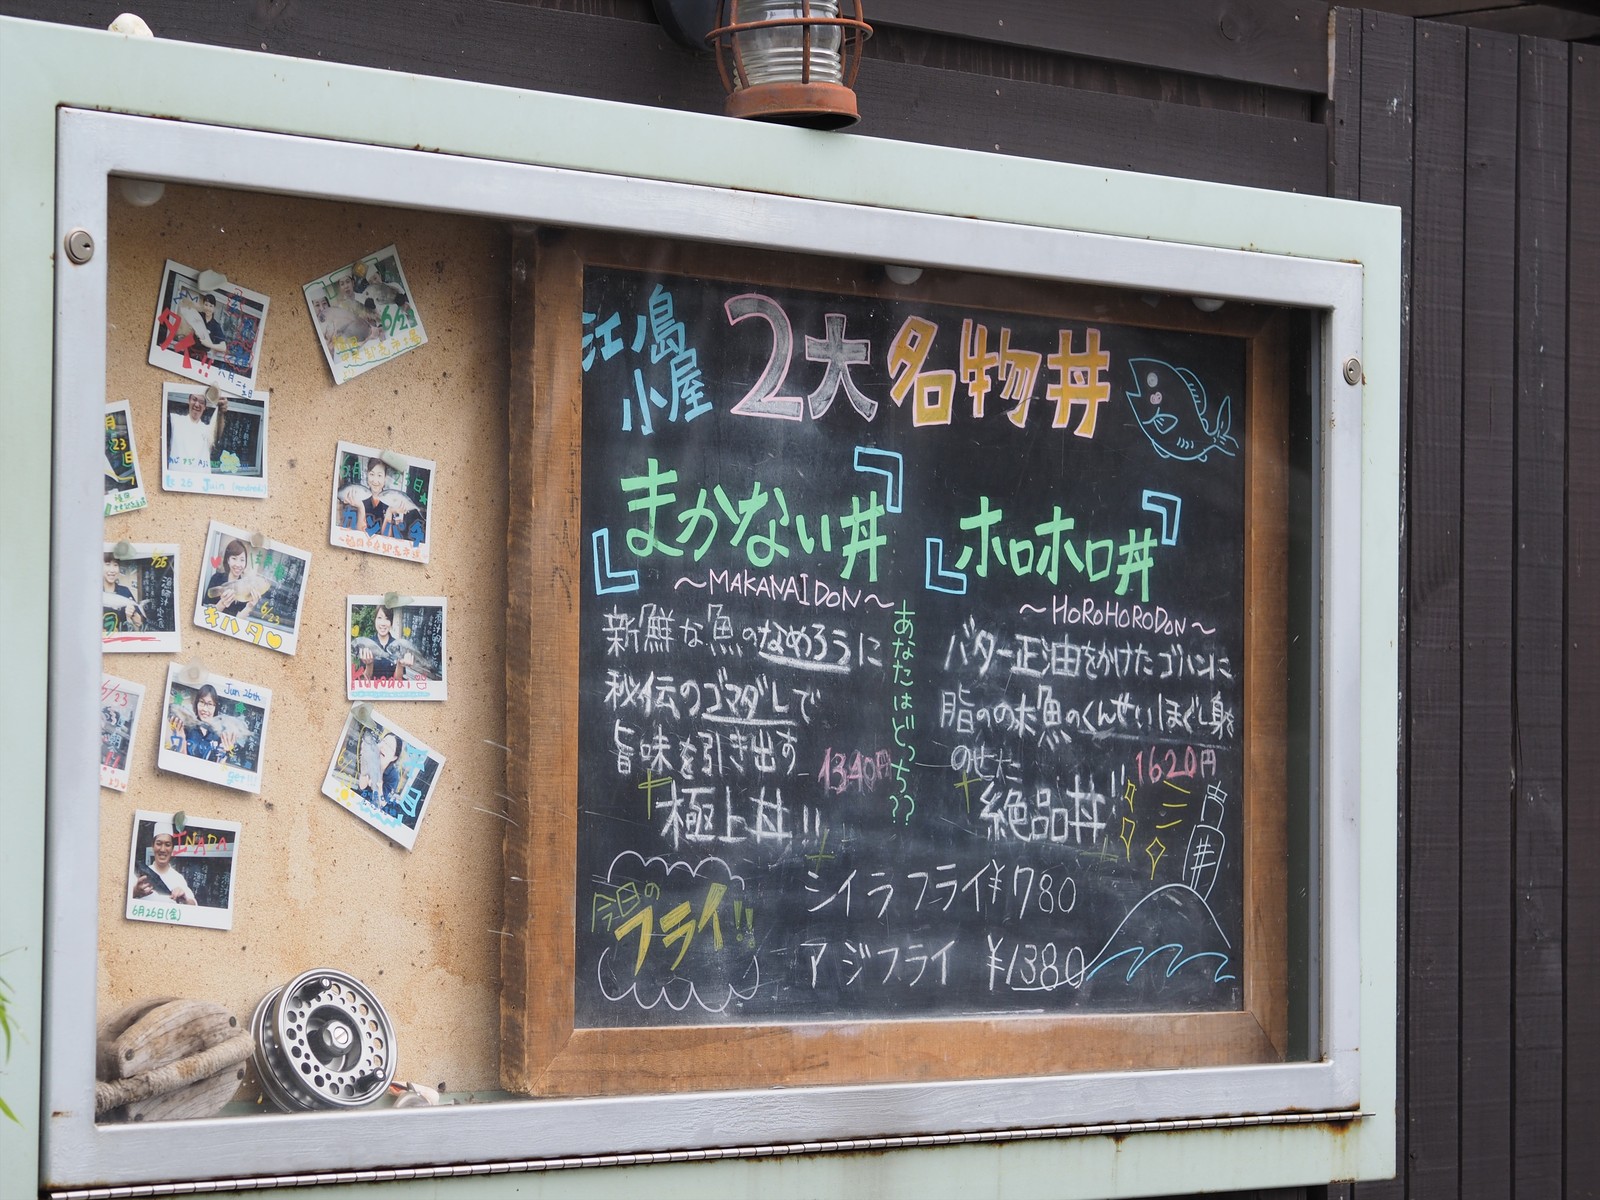 江ノ島
小屋
2大名物丼
『まかない丼』
〜MAKANAIDON〜
新鮮な魚のなめろうに
秘伝のゴマダレで
旨味を引き出す
極上丼!!
1340円
あなたはどっち??
『ホロホロ丼』
〜HOROHORODON〜
バター正油をかけたゴハンに
脂のの来魚のくんせいほぐし身を
のせた
絶品丼!!
1620円
今日の
フライ!!
シイラフライ¥780
アジフライ ¥1380
タイ!!
6/23
26 Juin
カンパチ
6/23
キハタ
Jun 26th
get!!!
INADA
6月26日(金)